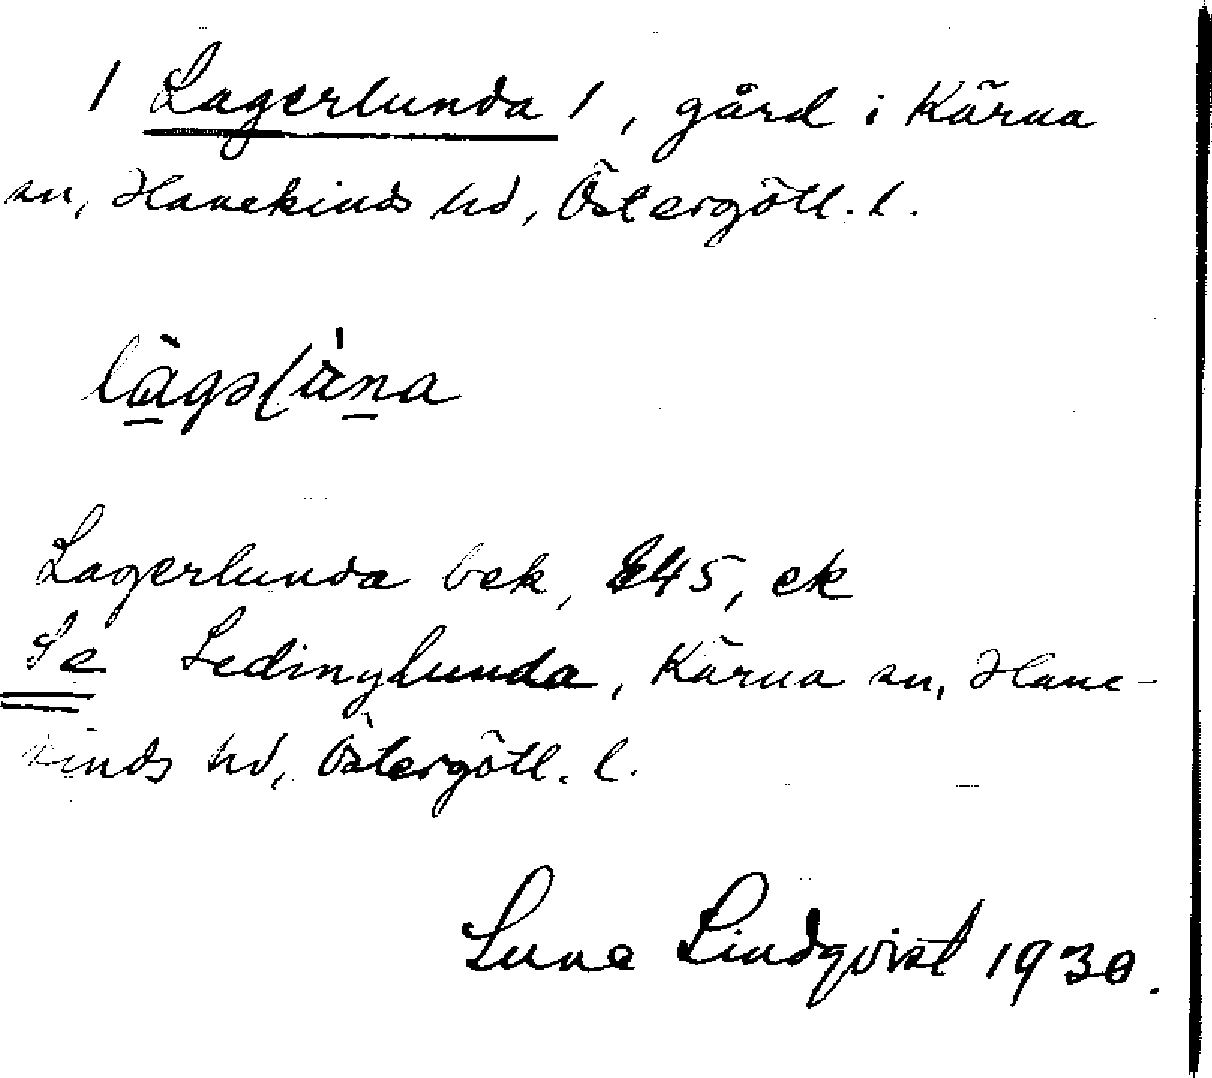 / Lagerlunda /, gård i Kärna
sn, Hanekinds hd, Östergötl. l.
Lagerlunda bek, E45, ek
Se Ledinglunda, Kärna sn, Hane-
kinds hd, Östergötl. l.
Sune Lindqvist 1930.